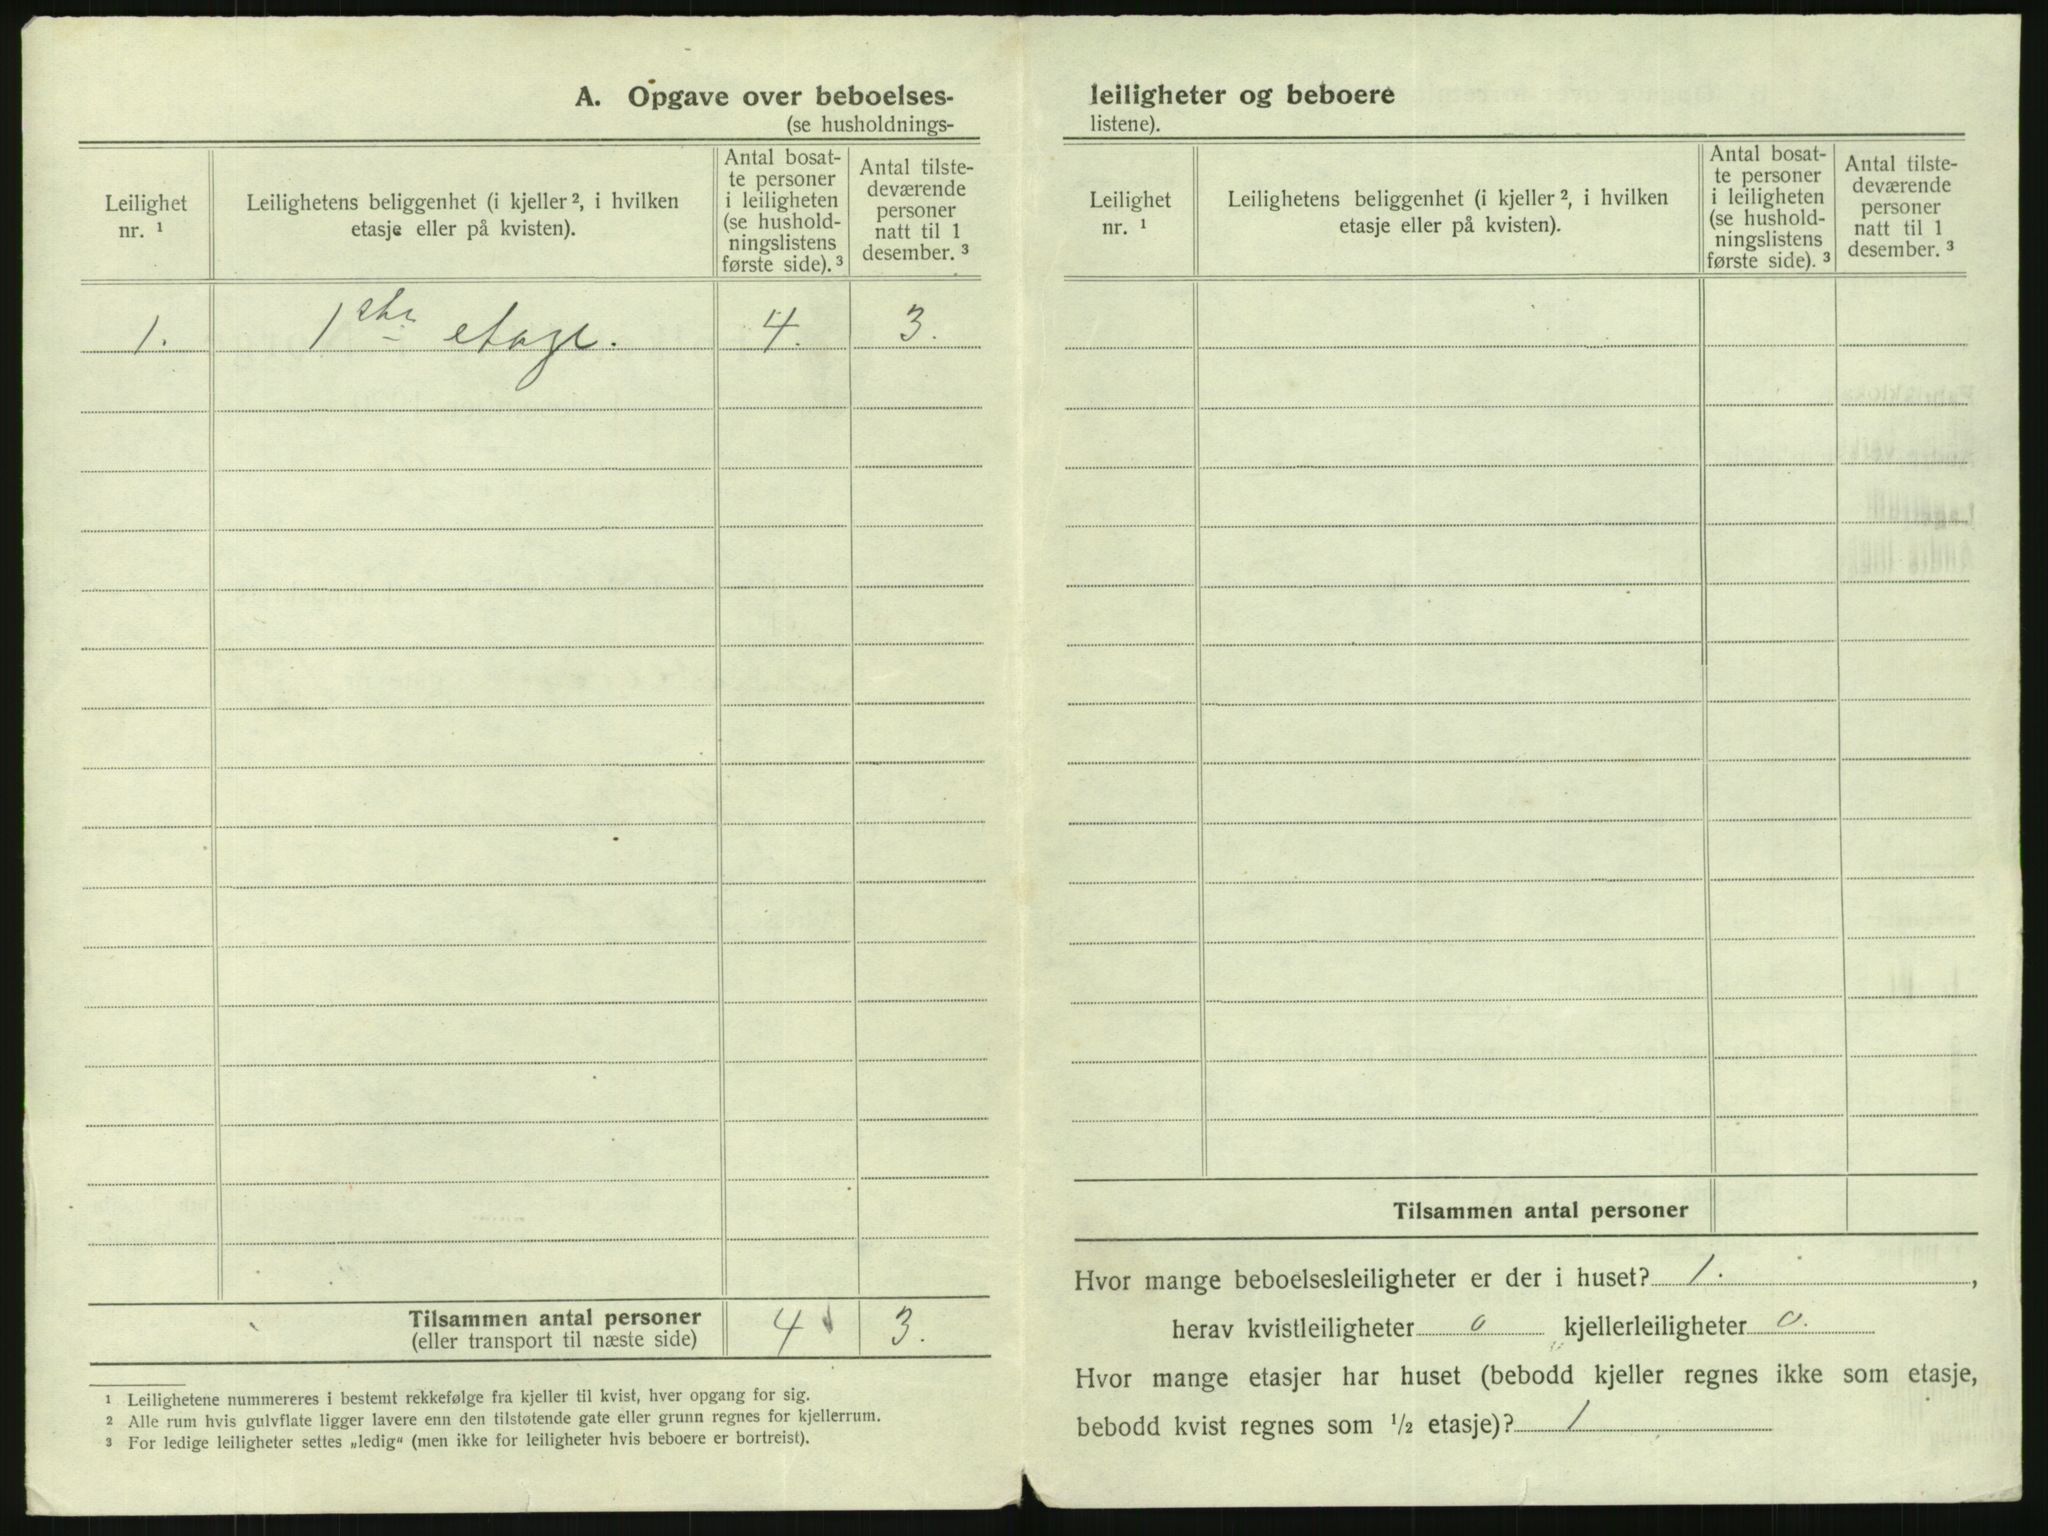 A. Opgave over beboelses-
(se husholdnings-
Leilighet
nr. ¹
Leilighetens beliggenhet (i kjeller ², i hvilken
etasje eller på kvisten).
Antal bosat-
te personer
i leiligheten
(se hushold-
ningslistens
første side). ³
Antal tilste-
deværende
personer
natt til 1
desember. ³
1. 1ste etage. 4. 3.
Tilsammen antal personer 4 3.
(eller transport til næste side)
¹ Leilighetene nummereres i bestemt rekkefølge fra kjeller til kvist, hver opgang for sig.
² Alle rum hvis gulvflate ligger lavere enn den tilstøtende gate eller grunn regnes for kjellerrum.
³ For ledige leiligheter settes „ledig“ (men ikke for leiligheter hvis beboere er bortreist).
leiligheter og beboere
listene).
Leilighet
nr. ¹
Leilighetens beliggenhet (i kjeller ², i hvilken
etasje eller på kvisten).
Antal bosat-
te personer
i leiligheten
(se hushold-
ningslistens
første side). ³
Antal tilste-
deværende
personer
natt til 1
desember. ³
Tilsammen antal personer
Hvor mange beboelsesleiligheter er der i huset? 1. ,
herav kvistleiligheter 0 kjellerleiligheter 0.
Hvor mange etasjer har huset (bebodd kjeller regnes ikke som etasje,
bebodd kvist regnes som ½ etasje)? 1